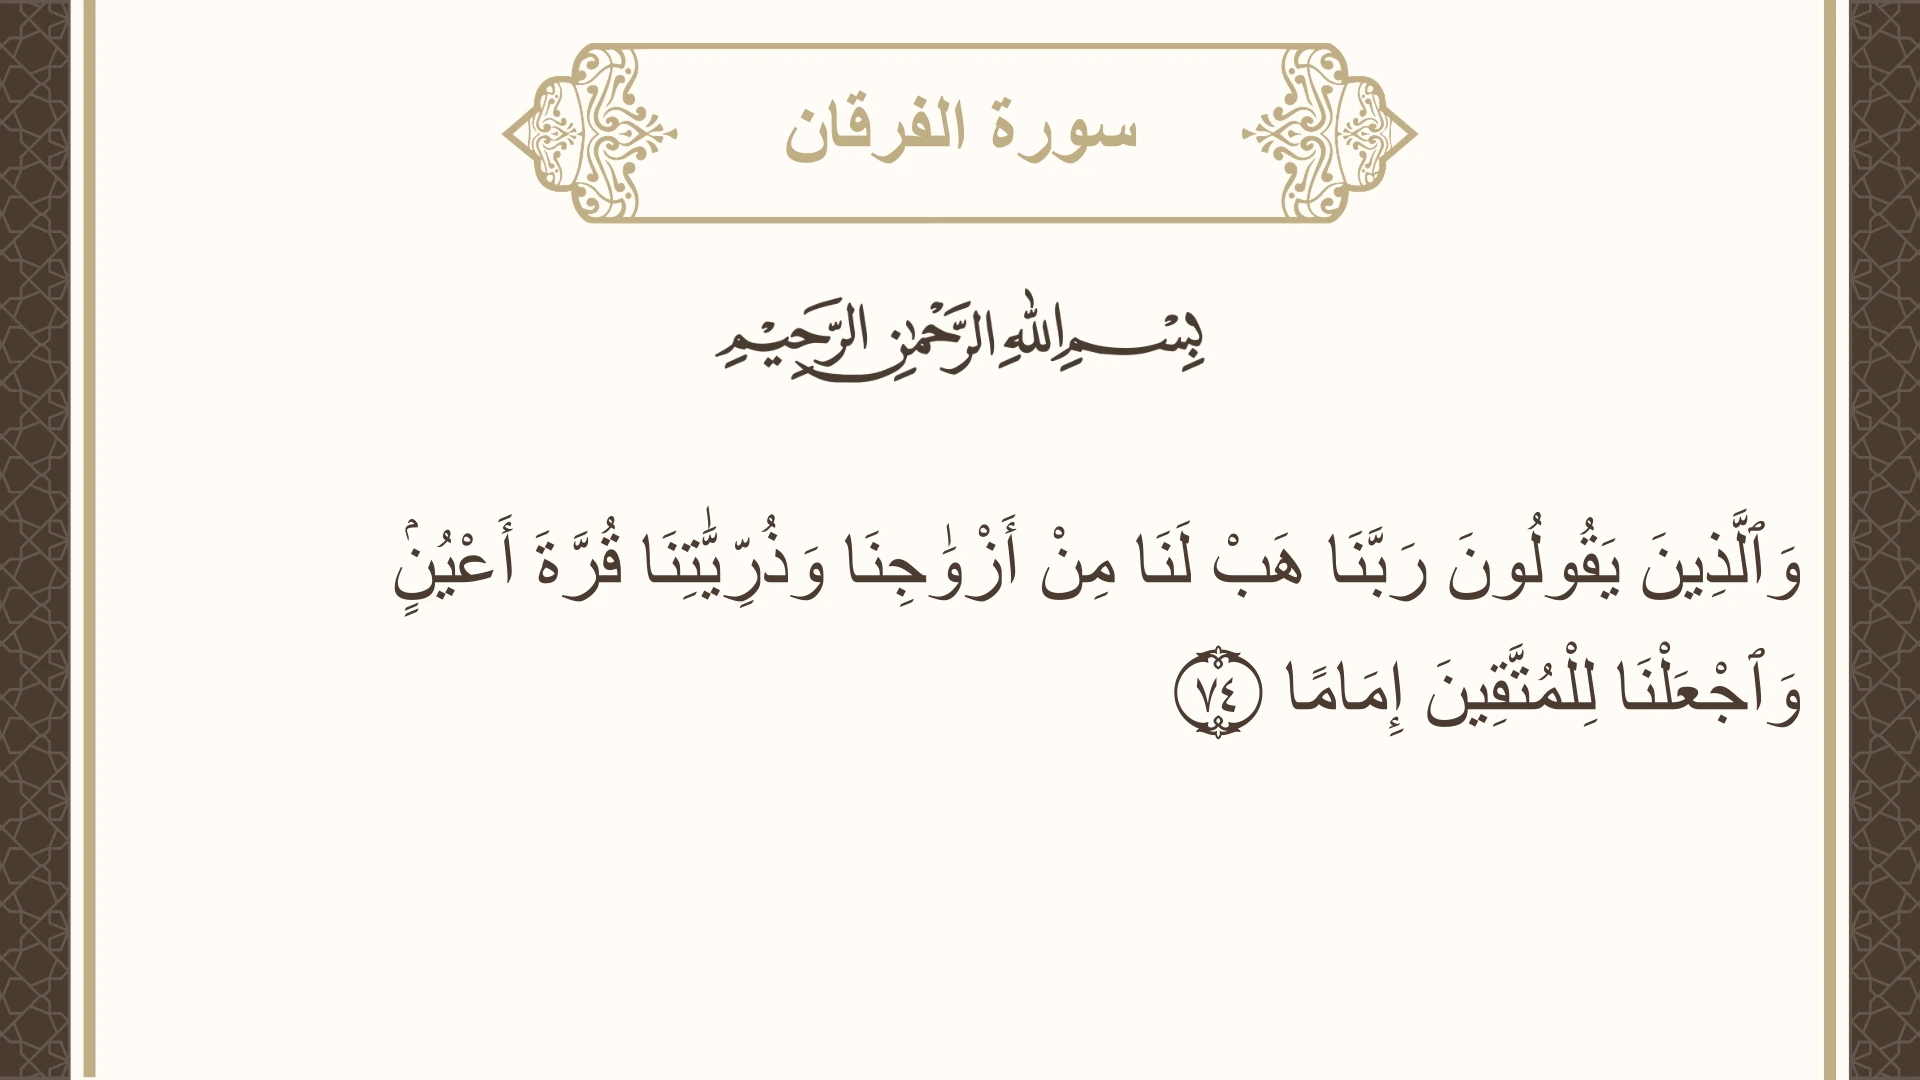 سورة الفرقان
بِسْمِ اللهِ الرَّحْمٰنِ الرَّحِيْمِ
وَٱلَّذِينَ يَقُولُونَ رَبَّنَا هَبْ لَنَا مِنْ أَزْوَٰجِنَا وَذُرِّيَّٰتِنَا قُرَّةَ أَعْيُنٍۢ
وَٱجْعَلْنَا لِلْمُتَّقِينَ إِمَامًا ٧٤